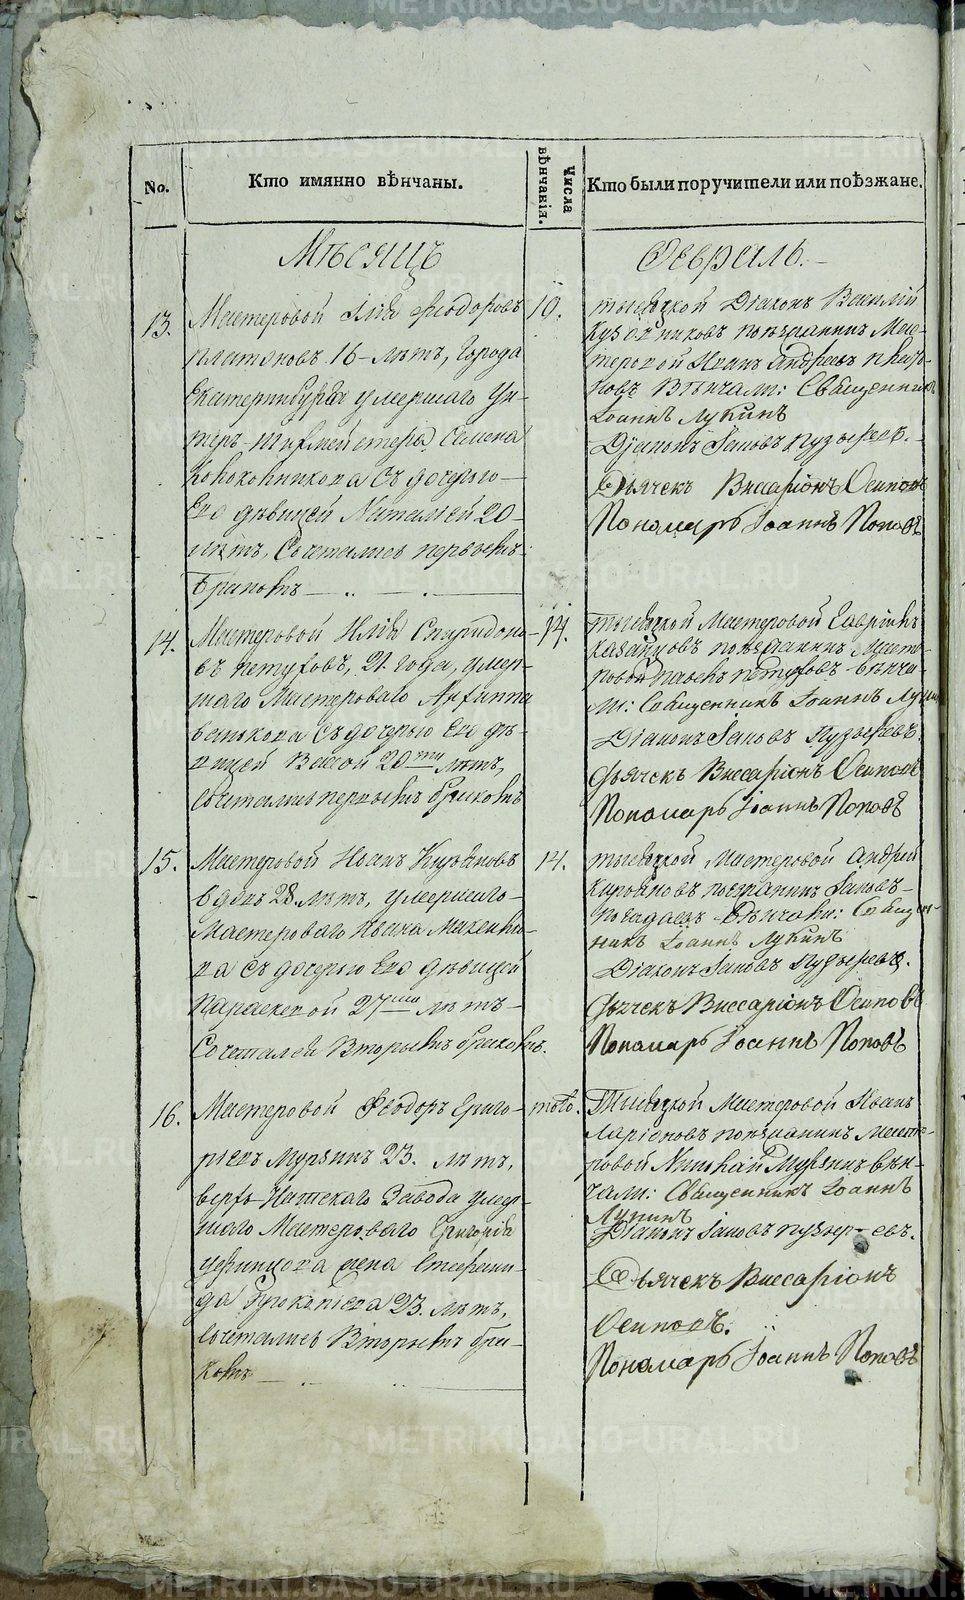 No.
Кто имянно вѣнчаны.
Числа вѣнчанія.
Кто были поручители или поѣзжане.
Мѣсяцъ
Февраль.
13.
Мастеровой Илiя Феодоровъ
Платоновъ 16 лѣтъ, Города
Екатеринбурга умершаго Ун-
теръ-Шихмейстера Семена
съ дочерью
Его дѣвицей Наталiей 20
лѣтъ, Сочетались первымъ
Бракомъ
10.
тысяцкой Дiаконъ Василiй
поѣзжанинъ Мас-
теровой Иванъ Андреевъ
Вѣнчали: Священникъ
Iоаннъ Лукинъ
Дiаконъ Iаковъ Пузыревъ.
Дьячекъ Виссарiонъ Осиповъ
Пономарь Iоаннъ Поповъ
14.
Мастеровой Илiя Спиридоно-
въ Петуховъ, 21. года, умер-
шаго Мастероваго
съ дочерью Его дѣ-
вицей 20ти лѣтъ,
сочетались первымъ бракомъ
14.
тысяцкой Мастеровой
Казанцовъ поѣзжанинъ Масте-
ровой Петуховъ вѣнча-
ли: Священникъ Iоаннъ Лукинъ
Дiаконъ Iаковъ Пузыревъ.
Дьячекъ Виссарiонъ Осиповъ
Пономарь Iоаннъ Поповъ
15.
Мастеровой Иванъ
вдовъ 28. лѣтъ, умершаго
Мастероваго Ивана
съ дочерью Его дѣвицей
Параскевой 27ми лѣтъ
Сочетались Вторымъ бракомъ.
14.
тысяцкой Мастеровой Андрей
поѣзжанинъ Iаковъ
Вѣнчали: Священ-
никъ Iоаннъ Лукинъ
Дiаконъ Iаковъ Пузыревъ.
Дьячекъ Виссарiонъ Осиповъ
Пономарь Iоаннъ Поповъ
16.
Мастеровой Феодоръ Григо-
рiевъ Мурзинъ 23. лѣтъ,
Верхъ-Исетскаго Завода умер-
шаго Мастероваго Григорiя
жена Степани-
да Прокопiева 23. лѣтъ,
сочетались Вторымъ бра-
комъ
тогожъ.
Тысяцкой Мастеровой Иванъ
Ларiоновъ поѣзжанинъ Масте-
ровой Николай Мурзинъ вѣн-
чали: Священникъ Iоаннъ
Лукинъ
Дiаконъ Iаковъ Пузыревъ.
Дьячекъ Виссарiонъ
Осиповъ.
Пономарь Iоаннъ Поповъ
METRIKI.GASO-URAL.RU